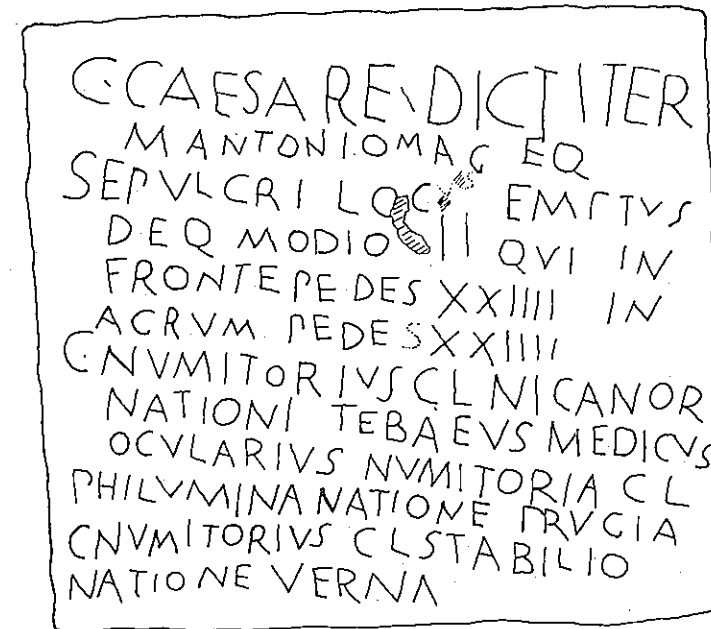 C·CAESARE·DICT ITER
M ANTONIO MAG EQ
SEPVLCRI LOCV EMPTVS
DE Q MODIO II QVI IN
FRONTE PEDES XXIIII IN
ACRVM PEDES XXIIII
C·NVMITORIVS C L NICANOR
NATIONI TEBAEVS MEDICVS
OCVLARIVS NVMITORIA C L
PHILVMINA NATIONE PRVGIA
C NVMITORIVS C L STABILIO
NATIONE VERNA